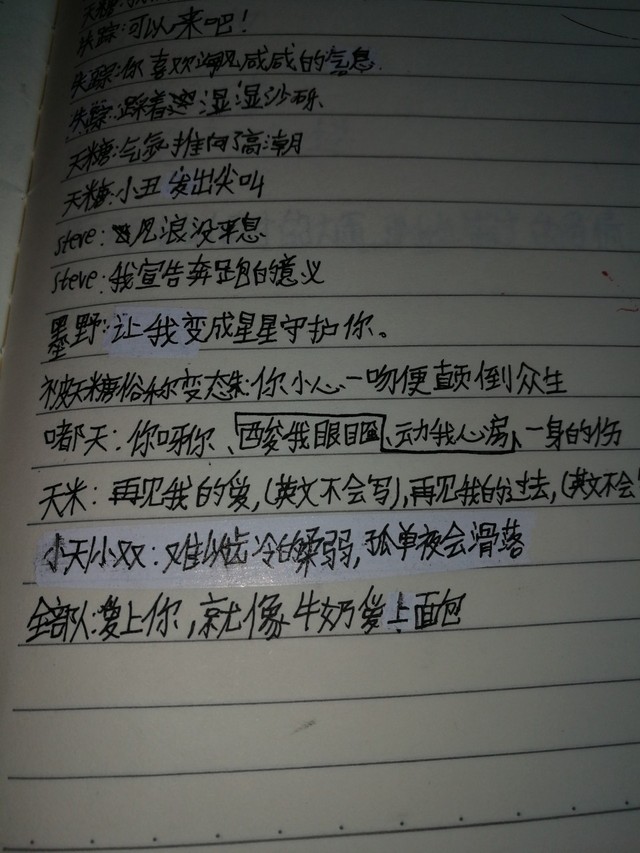 天糖:
失踪:可以来吧!
失踪:你喜欢海风咸咸的气息
失踪:踩着湿湿沙砾、
天糖:气氛推向了高潮
天糖:小丑发出尖叫
steve:见浪没平息
steve:我宣告奔跑的意义
墨野:让我变成星星守护你。
被天糖俗称变态朱:你小心一吻便颠倒众生
嘟天:你呀你、酸我眼眶、动我心房、一身的伤
天米:再见我的爱,(英文不会写),再见我的过去,(英文不会写
小天小双:难以启冷的柔弱,孤单夜会滑落
全部队:爱上你,就像牛奶爱上面包